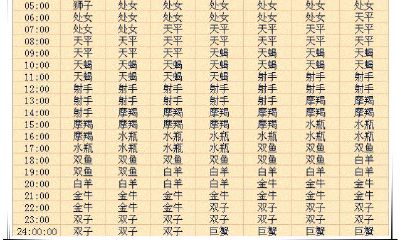 05:00 狮子 处女 处女 处女 处女 处女 处女
06:00 处女 处女 处女 处女 处女 处女 天平
07:00 处女 处女 天平 天平 天平 天平 天平
08:00 天平 天平 天平 天平 天平 天平 天平
09:00 天平 天平 天平 天蝎 天蝎 天蝎 天蝎
10:00 天蝎 天蝎 天蝎 天蝎 天蝎 天蝎 天蝎
11:00 天蝎 天蝎 天蝎 天蝎 射手 射手 射手
12:00 射手 射手 射手 射手 射手 射手 射手
13:00 射手 射手 射手 射手 射手 摩羯 摩羯
14:00 射手 摩羯 摩羯 摩羯 摩羯 摩羯 摩羯
15:00 摩羯 摩羯 摩羯 摩羯 水瓶 水瓶 水瓶
16:00 摩羯 水瓶 水瓶 水瓶 水瓶 水瓶 水瓶
17:00 水瓶 水瓶 水瓶 水瓶 双鱼 双鱼 双鱼
18:00 双鱼 双鱼 双鱼 双鱼 双鱼 双鱼 白羊
19:00 双鱼 双鱼 白羊 白羊 白羊 白羊 白羊
20:00 白羊 白羊 白羊 白羊 金牛 金牛 金牛
21:00 金牛 金牛 金牛 金牛 金牛 金牛 金牛
22:00 金牛 金牛 金牛 双子 双子 双子 双子
23:00 双子 双子 双子 双子 双子 双子 双子
24:00:00 双子 双子 双子 巨蟹 巨蟹 巨蟹 巨蟹